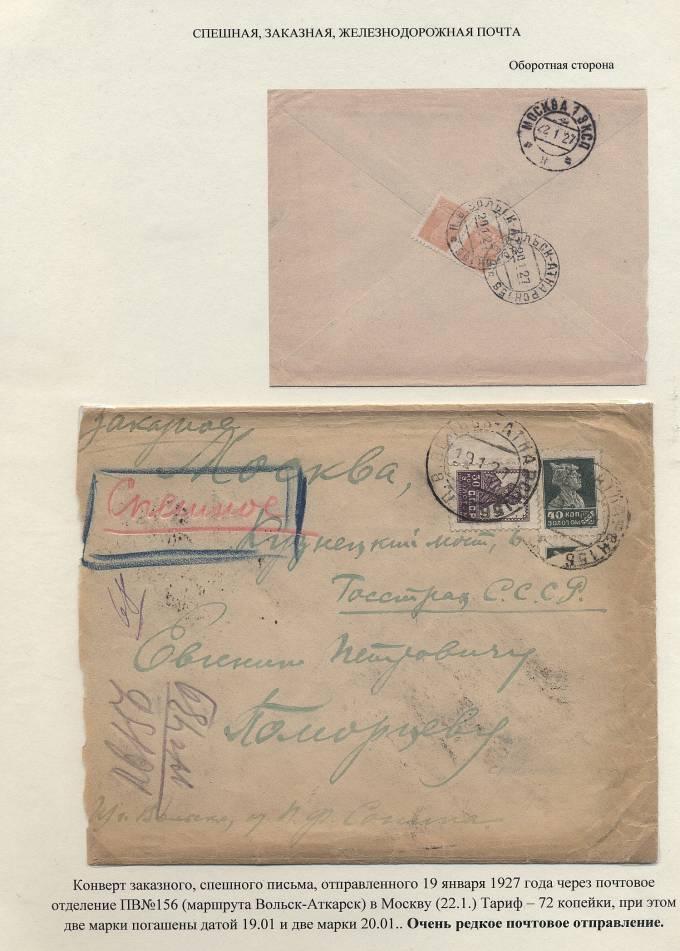 СПЕШНАЯ, ЗАКАЗНАЯ, ЖЕЛЕЗНОДОРОЖНАЯ ПОЧТА
Оборотная сторона
МОСКВА 1 ЭКСП
22 1 27
20 1 27
20 1 27
заказное
Москва,
Спешное
19 1 27
40 КОП
ЗОЛОТОМ
Кузнецкий мост, 6
Госстрах С.С.С.Р.
Евгению Петровичу
Поморцеву
Конверт заказного, спешного письма, отправленного 19 января 1927 года через почтовое
отделение ПВ№156 (маршрута Вольск-Аткарск) в Москву (22.1.) Тариф – 72 копейки, при этом
две марки погашены датой 19.01 и две марки 20.01.. Очень редкое почтовое отправление.